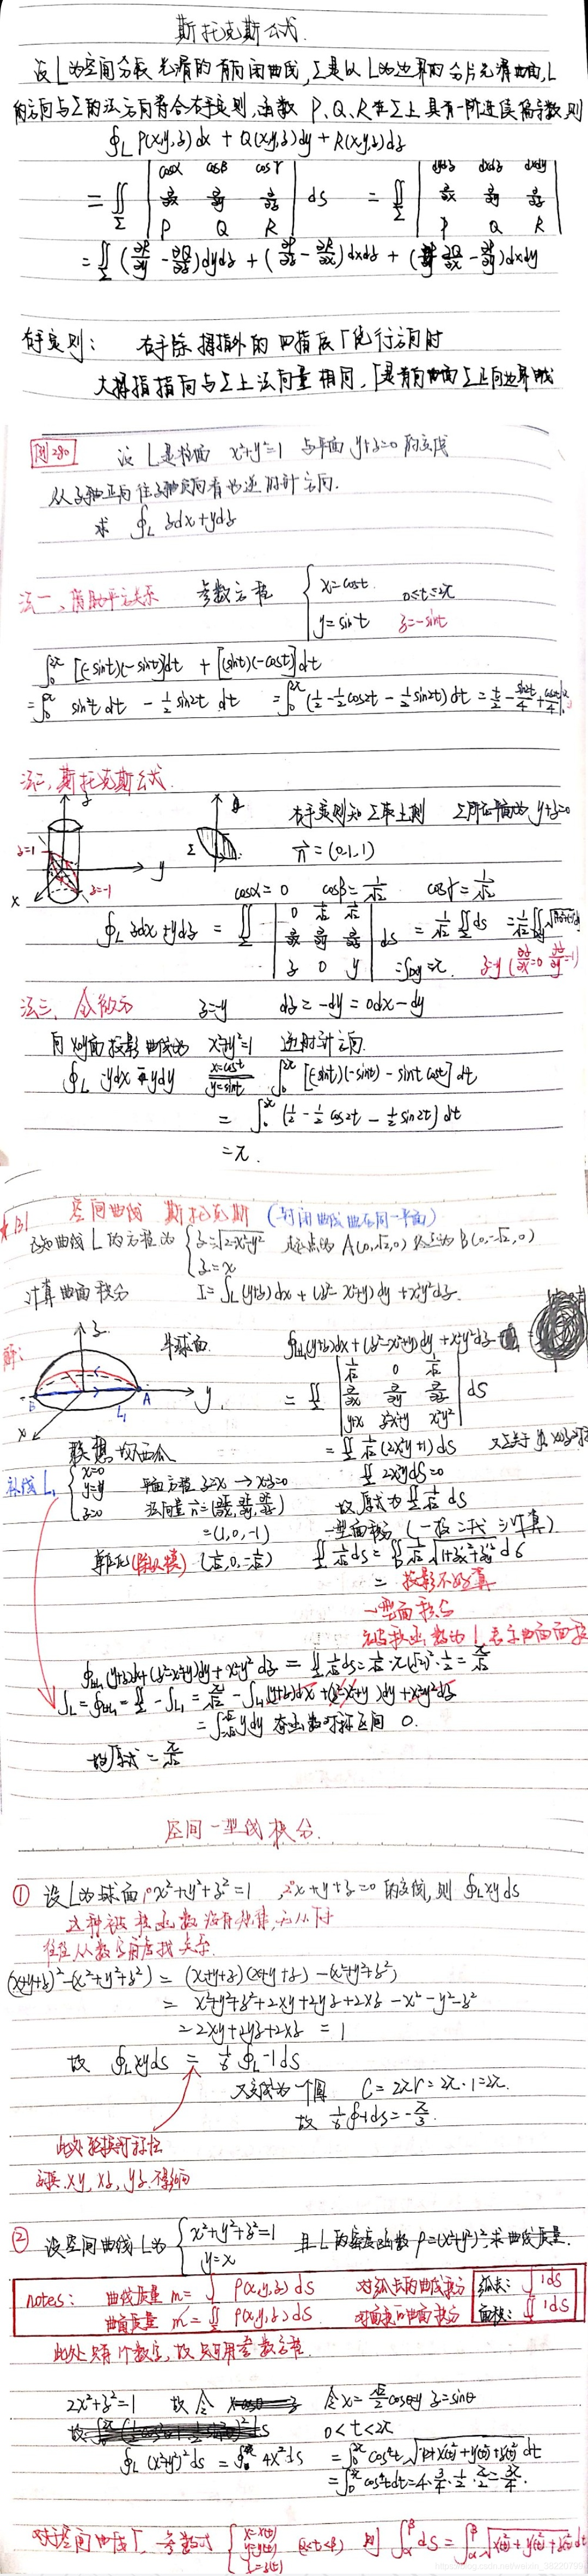 斯托克斯公式.
设L为空间分段光滑的有向闭曲线,Σ是以L为边界的分片光滑曲面,L
的方向与Σ的法方向符合右手定则,函数 P、Q、R在Σ上具有一阶连续偏导数,则
∮L P(x,y,z)dx + Q(x,y,z)dy + R(x,y,z)dz
= ∬Σ | cosα cosβ cosγ ; ∂/∂x ∂/∂y ∂/∂z ; P Q R | dS = ∬Σ | dydz dxdz dxdy ; ∂/∂x ∂/∂y ∂/∂z ; P Q R |
= ∬Σ (∂R/∂y - ∂Q/∂z)dydz + (∂P/∂z - ∂R/∂x)dxdz + (∂Q/∂x - ∂P/∂y)dxdy
右手定则: 右手除拇指外的四指依Γ绕行方向时
大拇指指向与Σ上法向量相同,Γ是有向曲面Σ正向边界曲线
例280 设L是柱面 x²+y²=1 与平面 y+z=0 的交线
从z轴正向往z轴负向看为逆时针方向.
求 ∮L zdx+ydz
法一、 参数方程 { x=cost. 0≤t≤2π
y=sint z=-sint
∫₀^2π [(-sint)(-sint)]dt + [(sint)(-cost)]dt
= ∫₀^2π sin²t dt - ½ sin2t dt = ∫₀^2π (½ - ½cos2t - ½sin2t) dt = t/2 - sin2t/4 + cos2t/4
法二,斯托克斯公式.
z y x z=1 z=-1 Σ
右手定则知Σ取上侧 Σ所在平面为 y+z=0
n = (0,1,1)
cosα=0 cosβ=1/√2 cosγ=1/√2
∮L zdx+ydz = ∬Σ | 0 1/√2 1/√2 ; ∂/∂x ∂/∂y ∂/∂z ; z 0 y | dS = 1/√2 ∬Σ dS
= ∬Dxy = π. z=-y (∂z/∂x=0 ∂z/∂y=-1)
法三、全微分 z=-y dz = -dy = 0dx-dy
向xoy面投影 曲线为 x²+y²=1 逆时针方向.
∮L -ydx-ydy x=cost y=sint ∫₀^2π [(-sint)(-sint) - sint cost] dt
= ∫₀^2π (½ - ½cos2t - ½sin2t) dt
= π.
131 空间曲线 斯托克斯 (封闭曲线也在同一平面)
已知曲线L的方程为 { z=√(2-x²-y²) 起点为A(0,√2,0) 终点为B(0,-√2,0)
z=x
计算曲面积分 I=∫L (y+z)dx + (z²-x²+y)dy + x²y²dz.
解:
z y x B A L₁
半球面
∮L+L₁(y+z)dx + (z²-x²+y)dy + x²y²dz
= ∬Σ dS
联想切西瓜
补线L₁ { x=0
y=y
z=0
平面方程 z=x → x-z=0
= (1,0,-1)
单位化 (1/√2,0,-1/√2)
= ∬ 1/√2 (2x²y+1)dS
∬ 2x²ydS=0
故原式为 ∬ 1/√2 dS
一型面积分 (一投 二代 三计算)
= 投影不好算
一型面积分
被积函数为1 表示曲面面积
∮L+L₁ (y+z)dx+(z²-x²+y)dy + x²y²dz = ∬ 1/√2 dS = 1/√2 · π(√2)² · ½ = π/√2
= ∫ ydy 奇函数对称区间 0.
故原式 = π/√2
空间一型线积分.
① 设L为球面 x²+y²+z²=1, x+y+z=0 的交线,则 ∮L xy ds
这种被积函数没有规律,无从下手
往往从数字角度找关系.
(x+y+z)²-(x²+y²+z²) = (x+y+z)(x+y+z) -(x²+y²+z²)
= x²+y²+z²+2xy+2yz+2xz-x²-y²-z²
= 2xy+2yz+2xz = 1
故 ∮L xyds = 1/6 ∮L -1ds
又交线为一个圆 C=2πr=2π·1=2π.
故 1/6 ∮-1ds = -π/3.
此处轮换对称性
交换xy, xz, yz 不影响
② 设空间曲线L为 { x²+y²+z²=1 且L的密度函数 ρ=(x²+y²)²,求曲线质量.
y=x
notes: 曲线质量 m=∫ ρ(x,y,z) ds 对弧长的曲线积分 弧长: ∫1ds
曲面质量 m=∬ ρ(x,y,z) ds 对面积的曲面积分 面积: ∬1dS
此处只有1个数字,故只可用参数方程.
2x²+z²=1 故令 令x=√2/2 cosθ=y z=sinθ
0<t<2π
∮L (x²+y²)²ds = ∮ 4x⁴ds = ∫₀^2π cos⁴t
= ∫₀^2π cos⁴tdt = 4·¾·½·π/2 = 3π/4.
对于空间曲线Γ, 参数式 { x=x(t) y=y(t) z=z(t) (α≤t≤β) 则